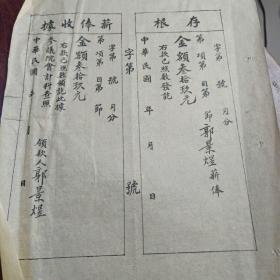 存根
字第　號　月分
第　項第　目第　節郭景煜薪俸
金額叁拾玖元
右款已照數發訖
中華民國　年　月　日
字第　號
薪俸收據
字第　號　月分
第　項第　目第　節
金額叁拾玖元
右款已照數領訖此據
參議院會計科查照
中華民國　年　月　日
領款人郭景煜